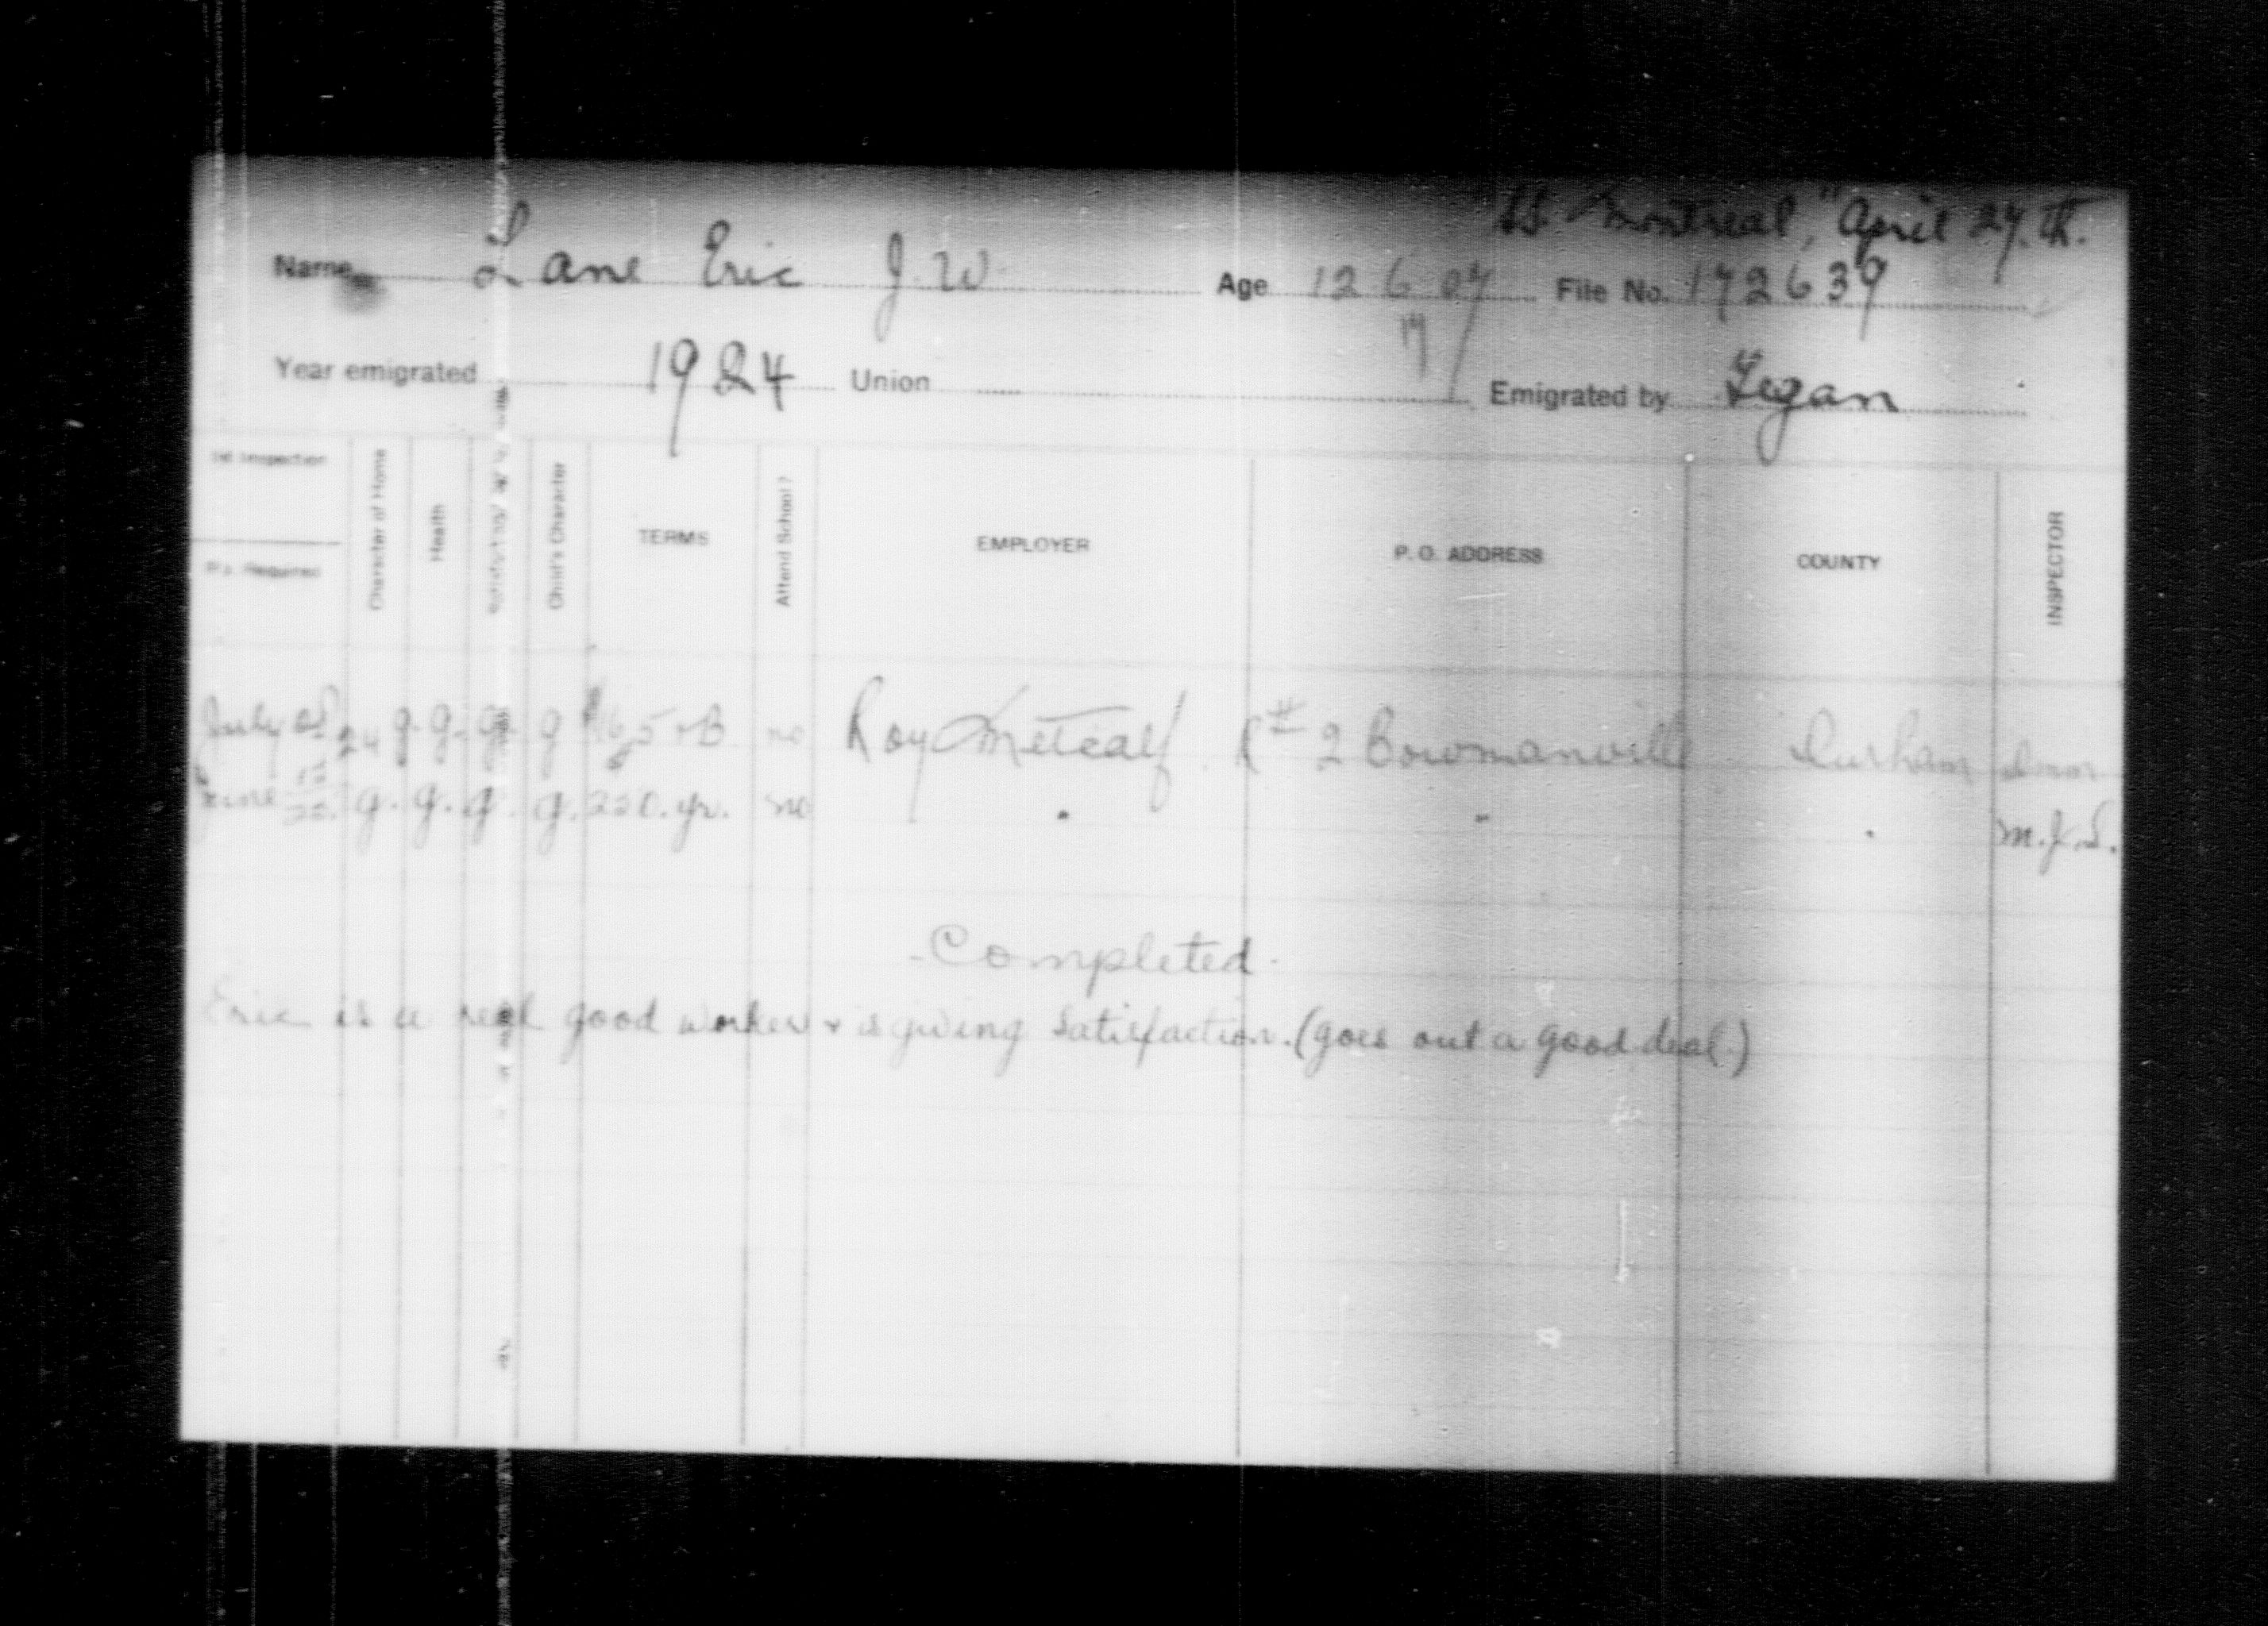 SS. "Montreal," April 27.th.
Name Lane Eric J. W Age 12 6 07 File No. 172639
17
Year emigrated 1924 Union Emigrated by Fegan
1st Inspection
Character of Home
Health
Child's Character
TERMS
Attend School?
EMPLOYER
P. O. ADDRESS
COUNTY
INSPECTOR
Required
July 24 g. g. g. g no Roy Metcalf R # 2 Bowmanville Durham
June g. g. g. g. 250. yr. no " " " M.J.S.
- Completed -
Eric is a real good worker + is giving satisfaction. (goes out a good deal.)